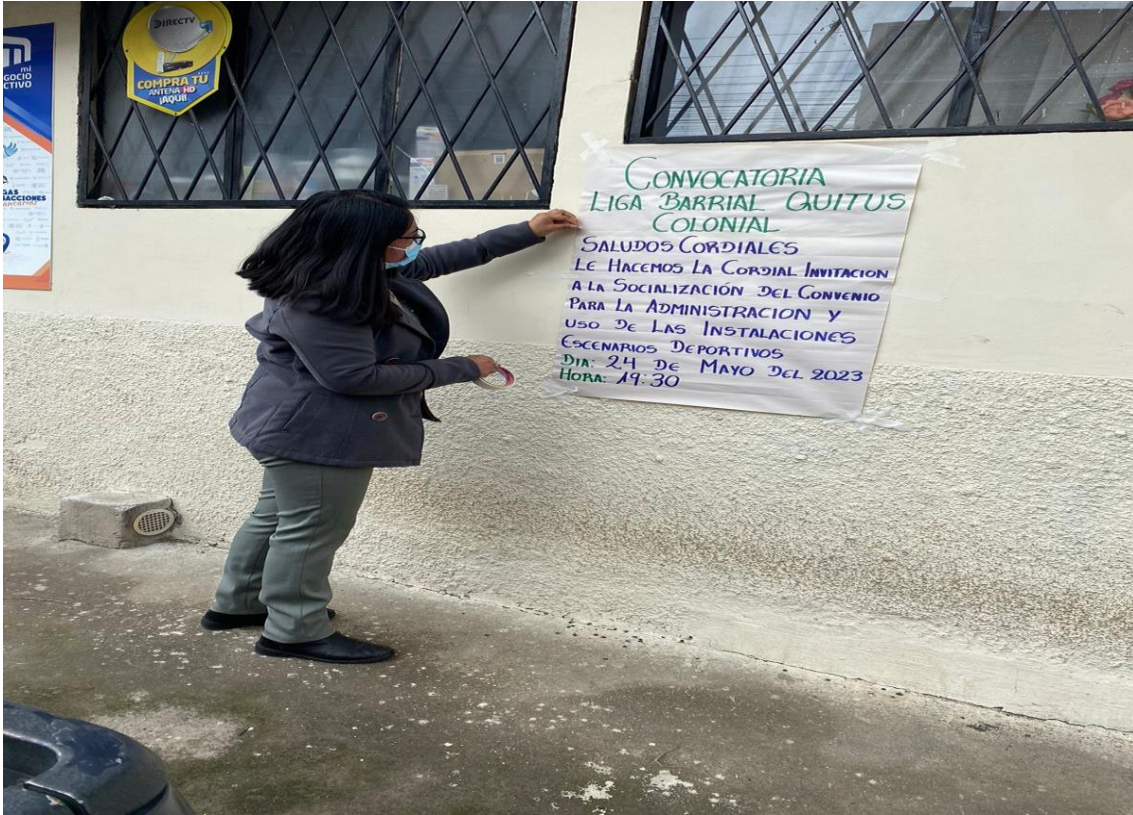 DIRECTV
COMPRA TU
ANTENA HD
¡AQUÍ!
mi
CONVOCATORIA
LIGA BARRIAL QUITUS
COLONIAL
SALUDOS CORDIALES
LE HACEMOS LA CORDIAL INVITACION
A LA SOCIALIZACIÓN DEL CONVENIO
PARA LA ADMINISTRACION Y
USO DE LAS INSTALACIONES
ESCENARIOS DEPORTIVOS
DIA: 24 DE MAYO DEL 2023
HORA: 19:30